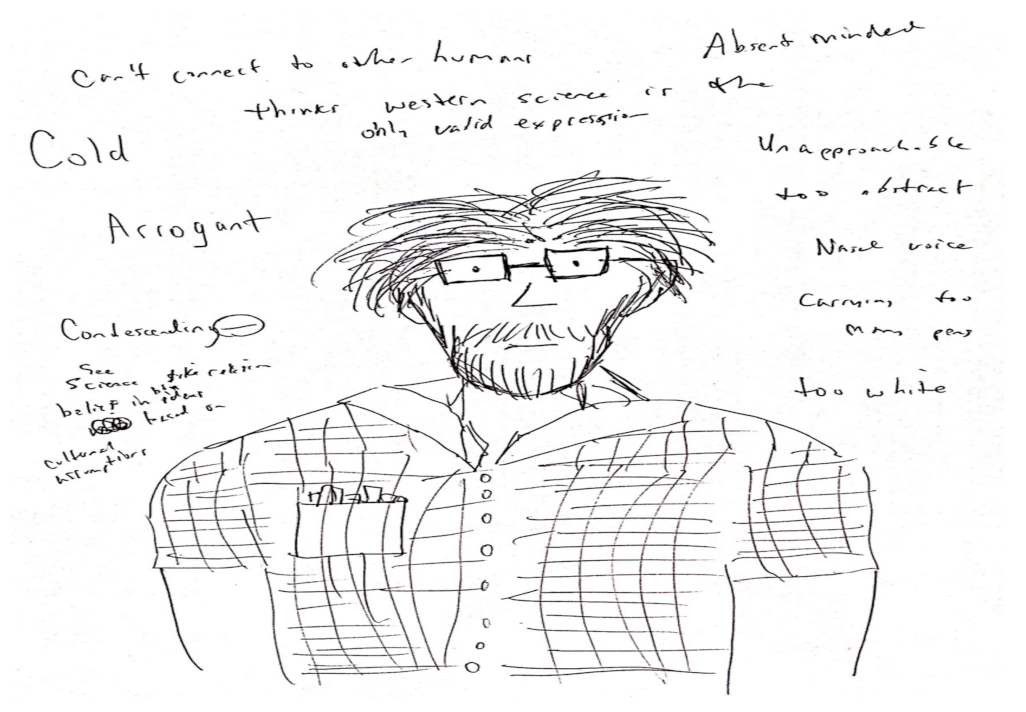 Can't connect to other humans
Absent minded
thinks western science is the
only valid expression
Cold
Arrogant
Condescending
See
Science like religion
belief in big ideas
based on
cultural
assumptions
Unapproachable
too abstract
Nasal voice
Carrying too
many pens
too white